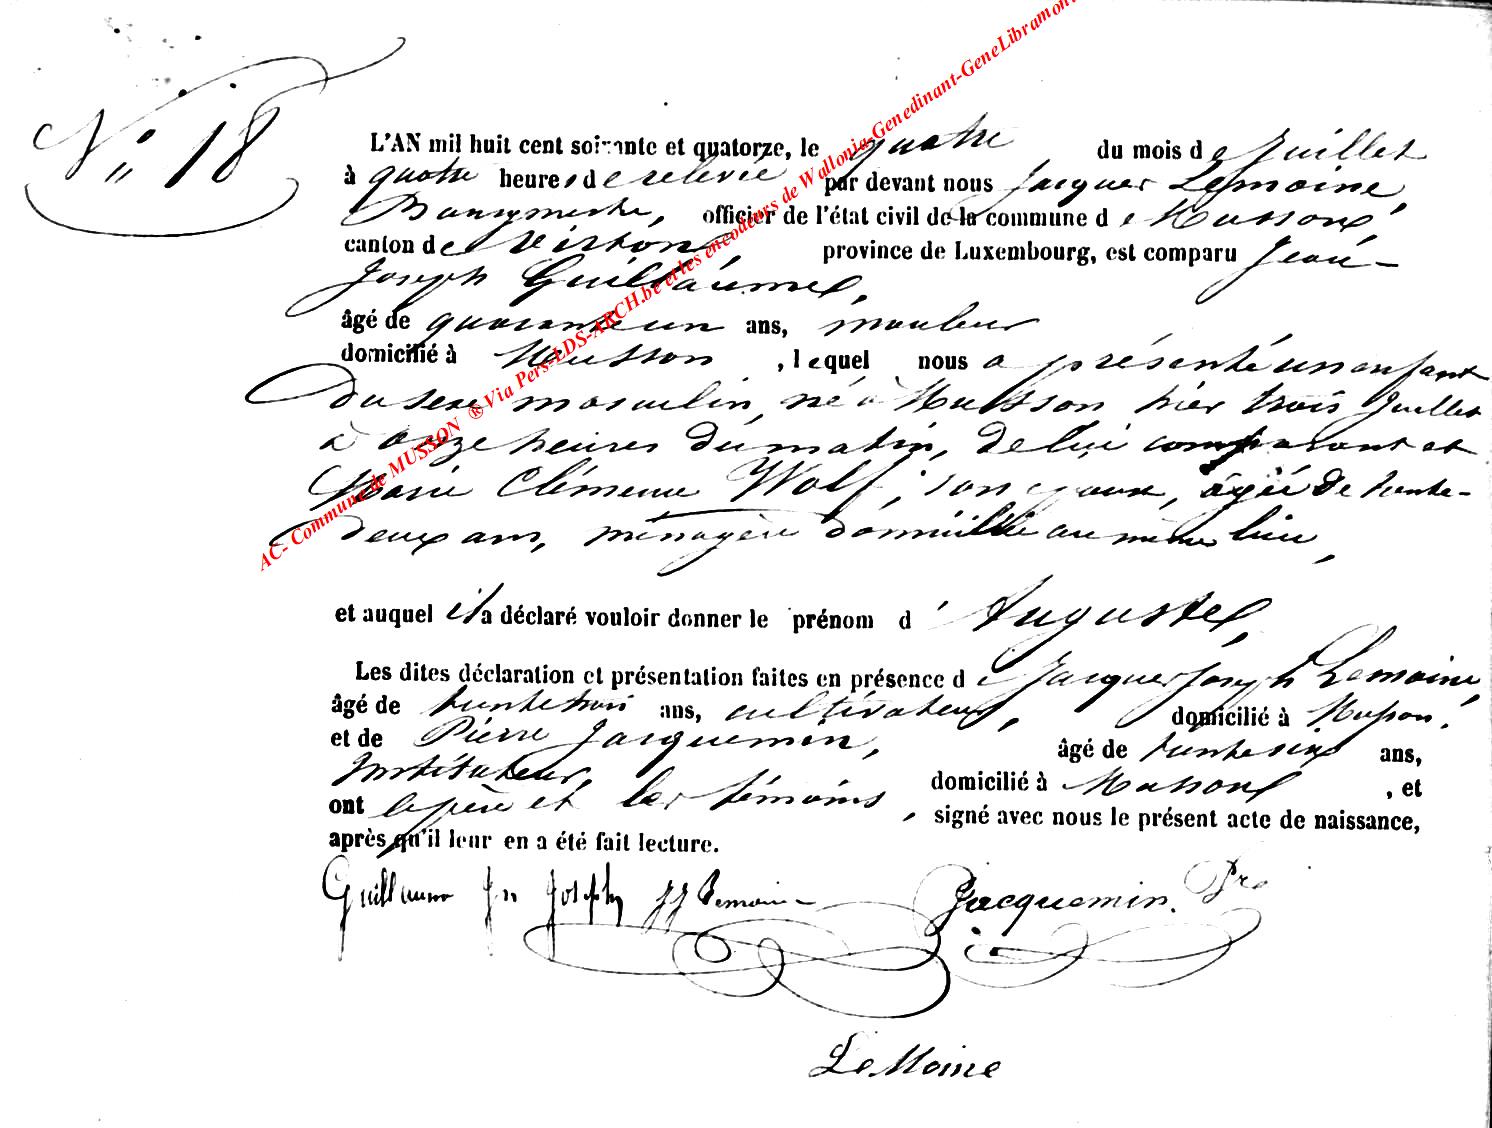 N° 18
L'AN mil huit cent soixante et quatorze, le quatre du mois de Juillet
à quatre heures de relevée par devant nous Jacques Lemoine,
Bourgmestre, officier de l'état civil de la commune de Musson,
canton de Virton, province de Luxembourg, est comparu Jean-
Joseph Guillaume,
âgé de quarante un ans, mouleur
domicilié à Musson, lequel nous a présenté un enfant
du sexe masculin, né à Musson hier trois Juillet
à onze heures du matin, de lui comparant et
Marie Clémence Wolf, son épouse, âgée de trente-
deux ans, ménagère domiciliée au même lieu,
et auquel il a déclaré vouloir donner le prénom d'Auguste,
Les dites déclaration et présentation faites en présence de Jacques Joseph Lemoine,
âgé de trente trois ans, cultivateur, domicilié à Musson,
et de Pierre Jacquemin, âgé de trente six ans,
Instituteur, domicilié à Musson, et
ont le père et les témoins, signé avec nous le présent acte de naissance,
après qu'il leur en a été fait lecture.
Guillaume Jn Joseph JJ Lemoine Jacquemin. Pre
LeMoine
AC- Commune de MUSSON ® Via Pers-LDS-ARCH.be et les encodeurs de Wallonia-Genedinant-GeneLibramon